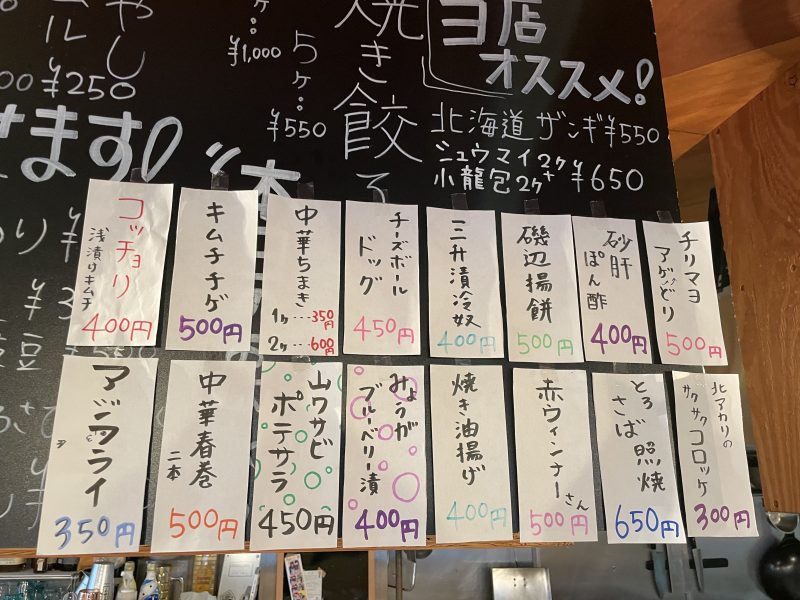 ヨ店
オススメ!
北海道ザンギ¥550
シュウマイ2ケ
小龍包2ケ ¥650
焼き餃
5ケ:
¥550
ケ:
¥1,000
やし
¥250
ます!
コッチョリ
浅漬りキムチ
400円
キムチチゲ
500円
中華ちまき
1ヶ…350円
2ヶ…600円
チーズボール
ドッグ
450円
三升漬冷奴
400円
磯辺揚餅
500円
砂肝
ぽん酢
400円
チリマヨ
アゲどり
500円
350円
中華春巻
二本
500円
山ワサビ
ポテサラ
450円
みょうが
ブルーベリー漬
400円
焼き油揚げ
400円
赤ウィンナーさん
500円
とろ
さば照焼
650円
北アカリの
サクサク
コロッケ
300円